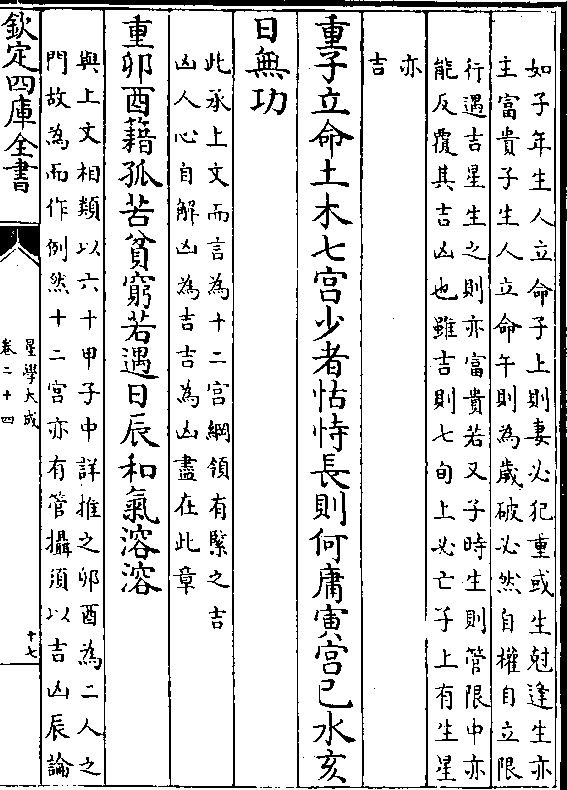 如子年生人立命子上則妻必犯重或生尅逢生亦
主富貴子生人立命午則為歲破必然自權自立限
行遇吉星生之則亦富貴若又子時生則管限中亦
能反覆其吉凶也雖吉則七旬上必亡子上有生星
亦
吉
重子立命土木七宫少者怙恃長則何庸寅宫已水亥
日無功
此承上文而言為十二宫綱領有緊之吉
凶人心自解凶為吉吉為凶盡在此章
重卯酉籍孤苦貧窮若遇日辰和氣溶溶
與上文相類以六十甲子中詳推之卯酉為二人之
門故為而作例然十二宫亦有管攝須以吉凶辰論
欽定四庫全書
星學大成
卷二十四
十七